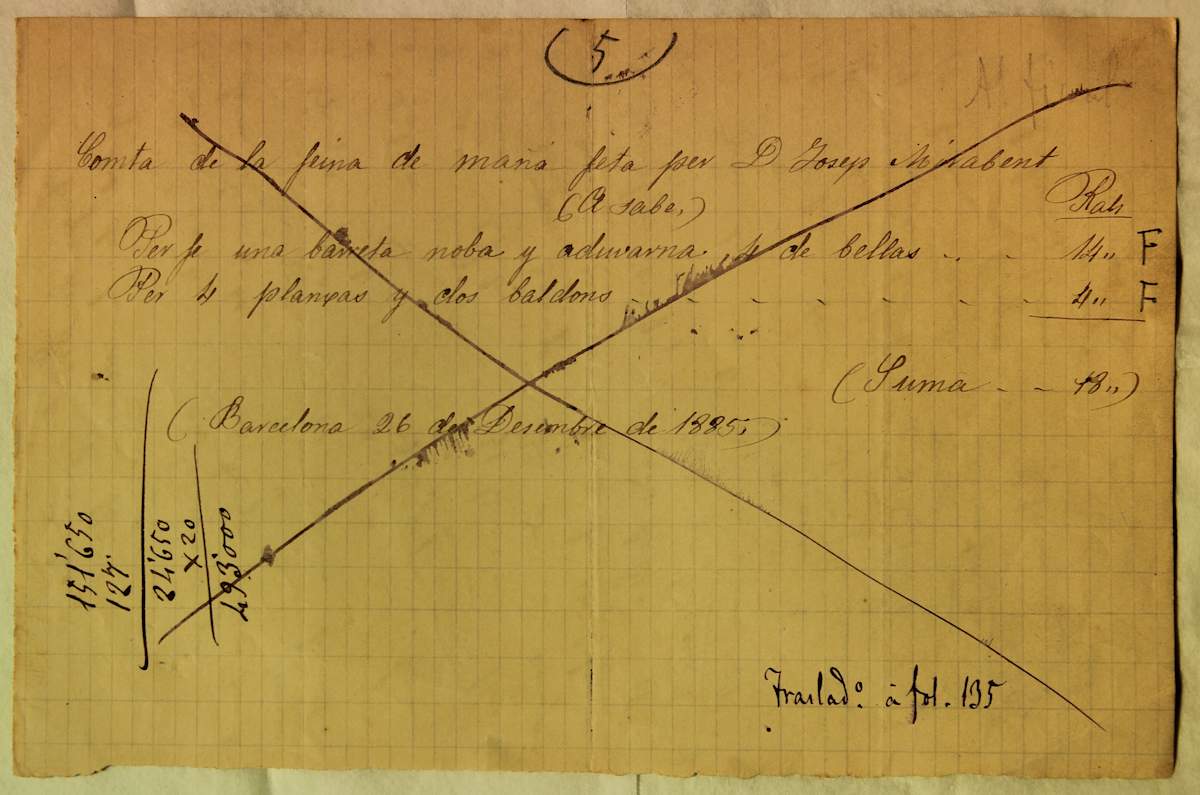 (5)
Comta de la feina de mañá feta per D Josep Mirabent
(A sabe,)
Rals
Per fe una barreta noba y aduvarna 4 de bellas .. - 14,, F
Per 4 planxas y dos baldons - - - - - - - - 4,, F
(Suma - - 18,,)
(Barcelona 26 de Desembre de 1885,)
151'650
127'
24'650
×20
493'000
Traslad.º á fol. 135